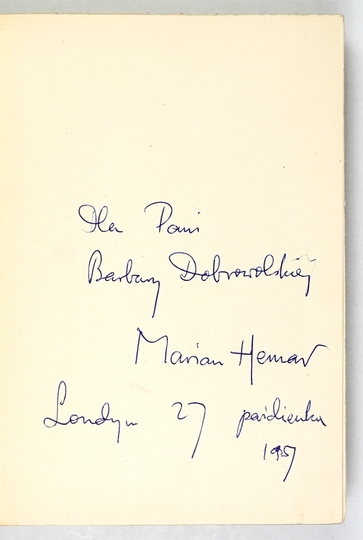 Dla Pani
Barbary Dobrowolskiej
Marian Hemar
Londyn 27 października
1957